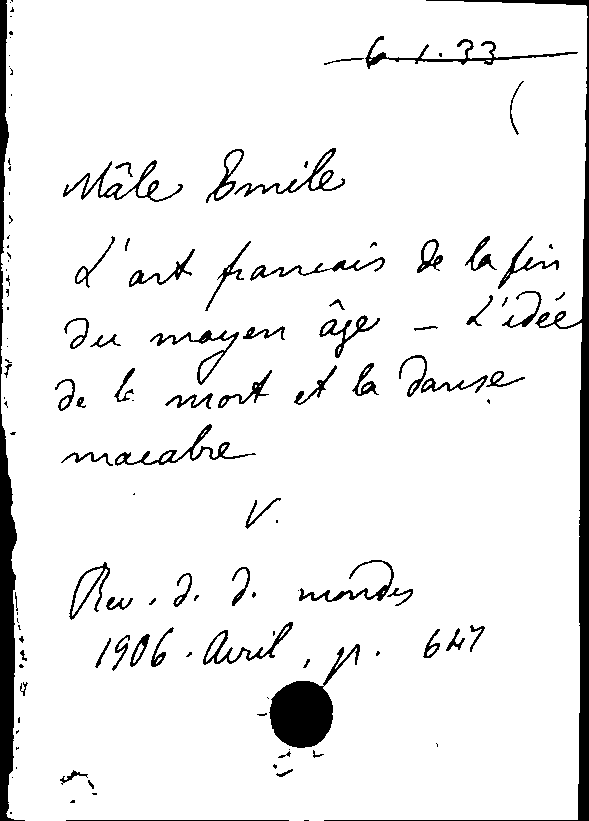 6.1.33
Mâle Emile
L'art francais de la fin
du moyen âge – L'idée
de la mort et la danse
macabre
V.
Rev. d. d. mondes
1906. Avril, p. 647